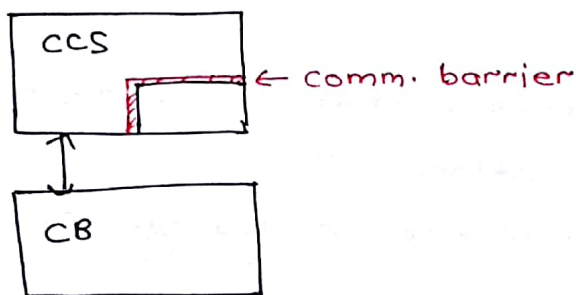 CCS
← comm. barrier
CB